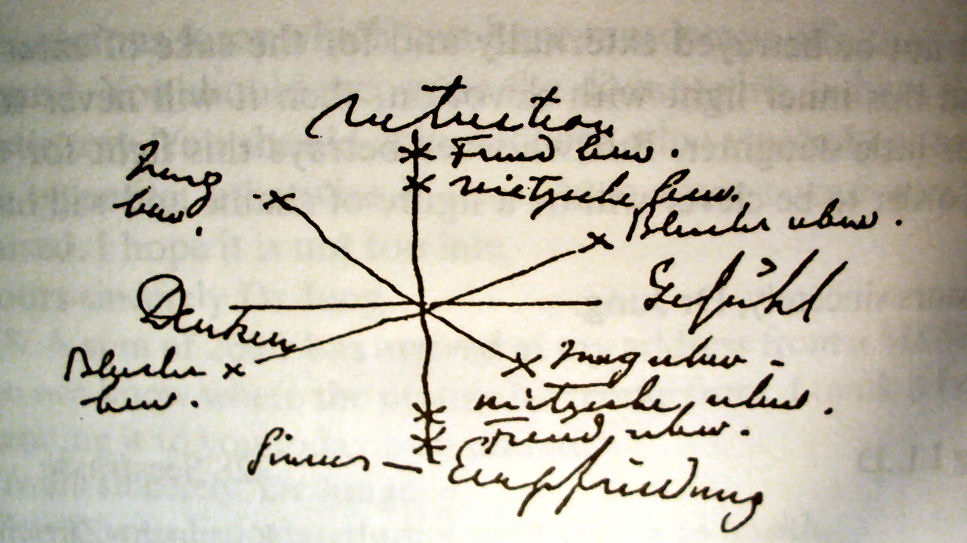 Intuition
Freud bew.
Jung
bew.
Nietzsche bew.
Bleuler ubw.
Denken
Gefühl
Bleuler
bew.
Jung ubw.
Nietzsche ubw.
Freud ubw.
Sinnes-Empfindung